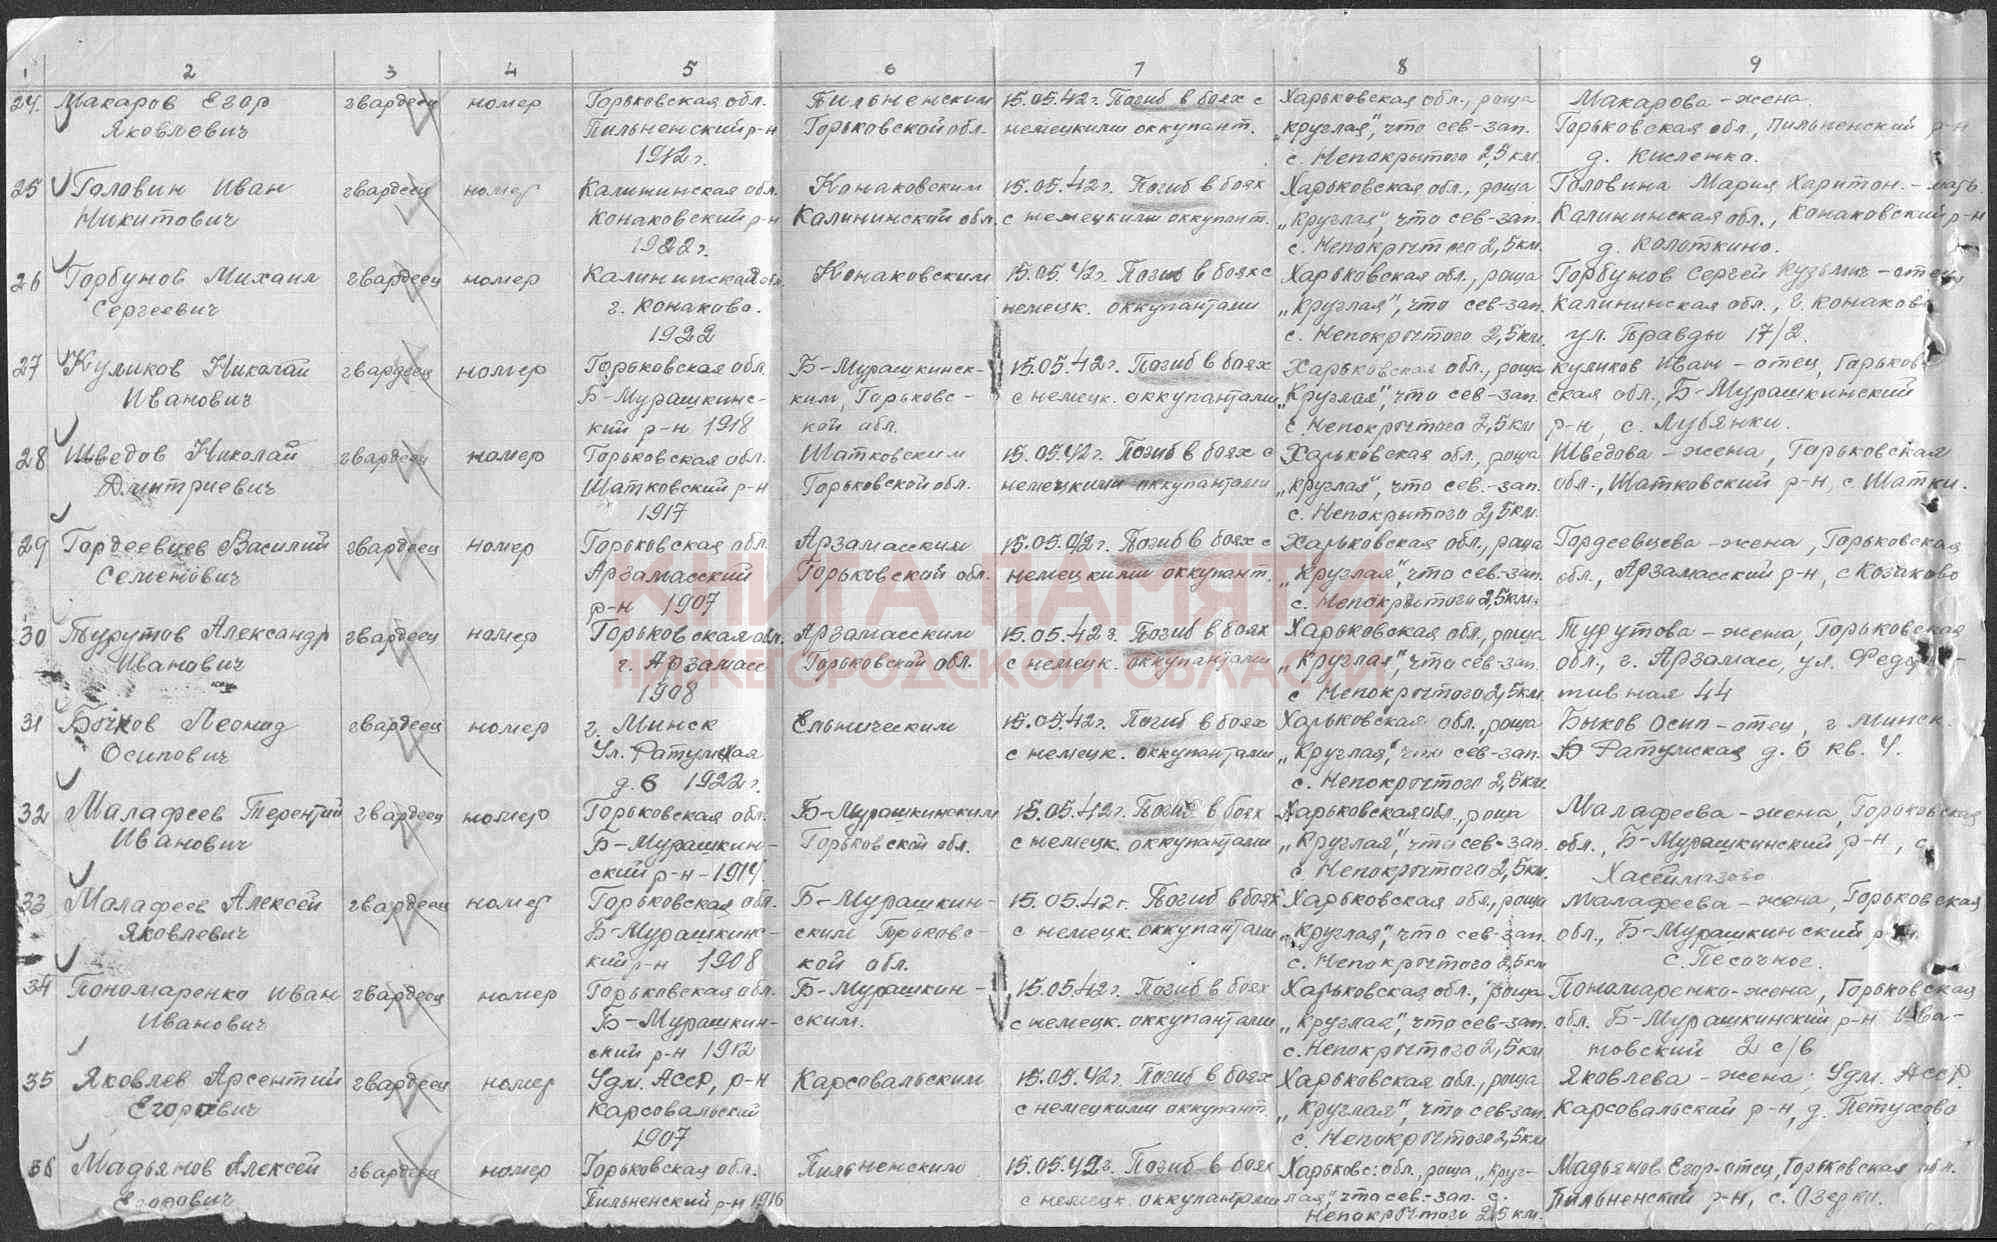 1 2 3 4 5 6 7 8 9
24. Макаров Егор Яковлевич гвардеец номер Горьковская обл. Пильненский р-н 1912 г. Пильненским Горьковской обл. 15.05.42 г. Погиб в боях с немецкими оккупант. Харьковская обл., роща „круглая", что сев-зап. с. Непокрытого 2,5 км. Макарова - жена. Горьковская обл., Пильненский р-н д. Кисленка.
25 Головин Иван Никитович гвардеец номер Калининская обл. Конаковский р-н 1922 г. Конаковским Калининской обл. 15.05.42 г. Погиб в боях с немецкими оккупант. Харьковская обл., роща „Круглая", что сев-зап. с. Непокрытого 2,5 км. Головина Мария Харитон. - мать. Калининская обл., Конаковский р-н д. Колоткино.
26 Горбунов Михаил Сергеевич гвардеец номер Калининская обл. г. Конаково. 1922 Конаковским 15.05.42 г. Погиб в боях с немецк. оккупантами Харьковская обл., роща „Круглая", что сев-зап. с. Непокрытого 2,5 км. Горбунов Сергей Кузьмич - отец Калининская обл., г. Конаково ул. Правды 17/2.
27 Куликов Николай Иванович гвардеец номер Горьковская обл. Б-Мурашкинс- кий р-н 1918 Б-Мурашкинск- ким, Горьковс- кой обл. 15.05.42 г. Погиб в боях с немецк. оккупантами Харьковская обл., роща „Круглая", что сев-зап. с. Непокрытого 2,5 км Куликов Иван - отец, Горьков- ская обл., Б-Мурашкинский р-н, с. Лубянки.
28 Шведов Николай Дмитриевич гвардеец номер Горьковская обл. Шатковский р-н 1917 Шатковским Горьковской обл. 15.05.42 г. Погиб в боях с немецкими оккупантами Харьковская обл., роща „Круглая", что сев.-зап. с. Непокрытого 2,5 км. Шведова - жена, Горьковская обл., Шатковский р-н, с. Шатки.
29 Гордеевцев Василий Семенович гвардеец номер Горьковская обл. Арзамасский р-н 1907 Арзамасским Горьковской обл. 15.05.42 г. Погиб в боях с немецкими оккупант. Харьковская обл., роща „Круглая", что сев-зап. с. Непокрытого 2,5 км. Гордеевцева - жена, Горьковская обл., Арзамасский р-н, с Козаково
КНИГА ПАМЯТИ
30 Турутов Александр Иванович гвардеец номер Горьковская обл. г. Арзамас 1908 Арзамасским Горьковской обл. 15.05.42 г. Погиб в боях с немецк. оккупантами Харьковская обл., роща „Круглая", что сев-зап. с. Непокрытого 2,5 км. Турутова - жена, Горьковская обл., г. Арзамас, ул. тивная 44
НИЖЕГОРОДСКОЙ ОБЛАСТИ
31 Быков Леонид Осипович гвардеец номер г. Минск Ул. Ратумская д. 6 1922 г. Ельническим 15.05.42 г. Погиб в боях с немецк. оккупантами Харьковская обл., роща „Круглая", что сев-зап. с. Непокрытого 2,5 км. Быков Осип - отец, г. Минск. Ратумская д. 6 кв. 4.
32 Малафеев Терентий Иванович гвардеец номер Горьковская обл. Б-Мурашкин- ский р-н - 1914 Б-Мурашкинским Горьковской обл. 15.05.42 г. Погиб в боях с немецк. оккупантами Харьковская обл., роща „Круглая", что сев-зап. с. Непокрытого 2,5 км. Малафеева - жена, Горьковская обл., Б-Мурашкинский р-н, с.
33 Малафеев Алексей Яковлевич гвардеец номер Горьковская обл. Б-Мурашкинс- кий р-н 1908 Б-Мурашкин- ским Горьковс- кой обл. 15.05.42 г. Погиб в боях с немецк. оккупантами Харьковская обл., роща „Круглая", что сев-зап. с. Непокрытого 2,5 км Малафеева - жена, Горьковская обл., Б-Мурашкинский р-н с. Песочное.
34 Пономаренко Иван Иванович гвардеец номер Горьковская обл. Б-Мурашкин- ский р-н 1912 Б-Мурашкин- ским. 15.05.42 г. Погиб в боях с немецк. оккупантами Харьковская обл., роща „Круглая", что сев-зап. с. Непокрытого 2,5 км Пономаренко - жена, Горьковская обл. Б-Мурашкинский р-н Ива- товский 2 с/в
35 Яковлев Арсентий Егорович гвардеец номер Удм. АССР, р-н Карсовальский 1907 Карсовальским 15.05.42 г. Погиб в боях с немецкими оккупант. Харьковская обл., роща „Круглая", что сев-зап. с. Непокрытого 2,5 км Яковлева - жена, Удм. АССР. Карсовальский р-н, д. Петухово
36 Мадьянов Алексей Егорович гвардеец номер Горьковская обл. Пильненский р-н 1916 Пильненским 15.05.42 г. Погиб в боях с немецк. оккупантами Харьковс. обл., роща „Круг- лая", что сев.-зап. с. Непокрытого 2,5 км. Мадьянов Егор-отец, Горьковская обл. Пильненский р-н, с. Озерки.